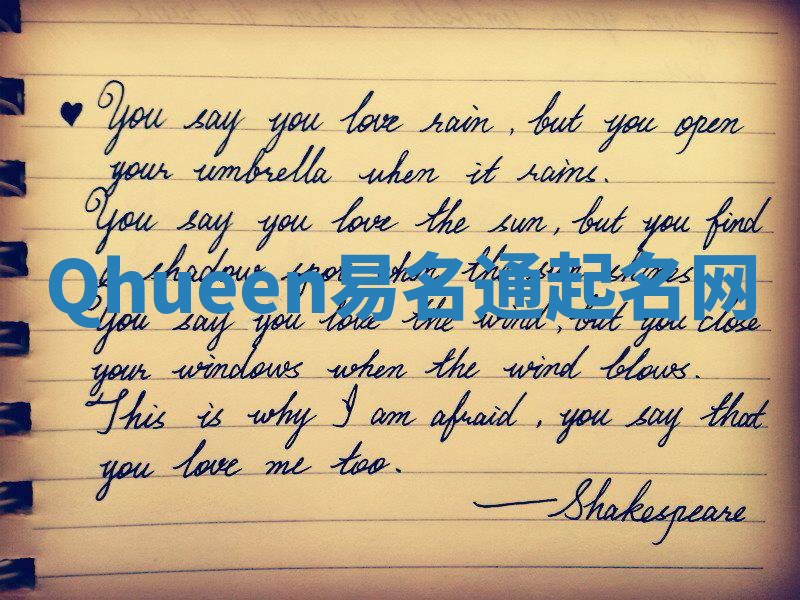 ♥ You say you love rain, but you open
your umbrella when it rains.
You say you love the sun, but you find
a shadow spot when the sun shines
Qhueen易名通起名网
You say you love the wind, but you close
your windows when the wind blows.
This is why I am afraid, you say that
you love me too.
—Shakespeare